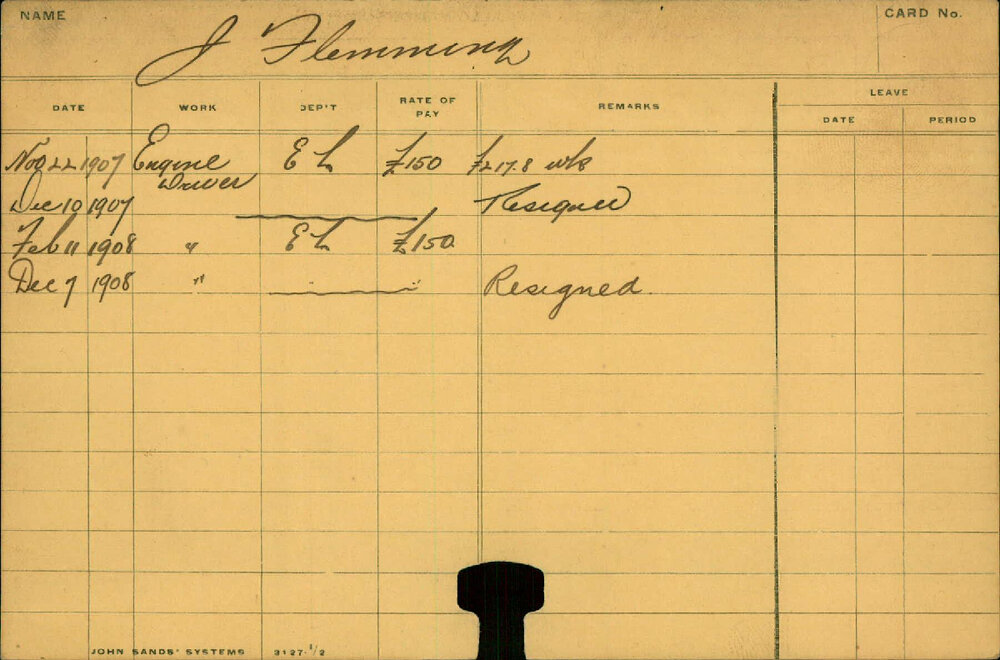 NAME J Flemming CARD No.
DATE WORK DEP'T RATE OF PAY REMARKS LEAVE
DATE PERIOD
Nov 22 1907 Engine Driver E L £150 £2.17.8 wk
Dec 10 1907 Resigned
Feb 11 1908 " E L £150
Dec 7 1908 " " " Resigned
JOHN SANDS' SYSTEMS 3127·1/2